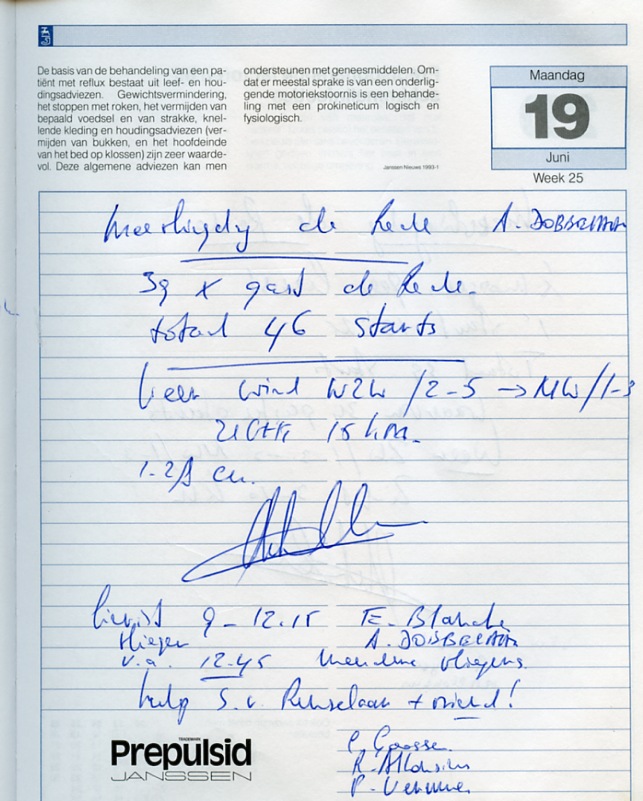 De basis van de behandeling van een pa-
tiënt met reflux bestaat uit leef- en hou-
dingsadviezen. Gewichtsvermindering,
het stoppen met roken, het vermijden van
bepaald voedsel en van strakke, knel-
lende kleding en houdingsadviezen (ver-
mijden van bukken, en het hoofdeinde
van het bed op klossen) zijn zeer waarde-
vol. Deze algemene adviezen kan men
ondersteunen met geneesmiddelen. Om-
dat er meestal sprake is van een onderlig-
gende motoriekstoornis is een behande-
ling met een prokineticum logisch en
fysiologisch.
Janssen Nieuws 1993-1
Maandag
19
Juni
Week 25
de Rede A. DOBBELAER
39 x gast de Rede.
totaal 46 starts
Weer wind WZW /2-5 → NW/1-3
ZICHT 15 km.
cu.
9 - 12.15 E.
vliegen A. DOBBELAER
v.a. 12.45 vliegers
hulp S. v. + vriend!
TRADEMARK
Prepulsid
JANSSEN
R.
P.